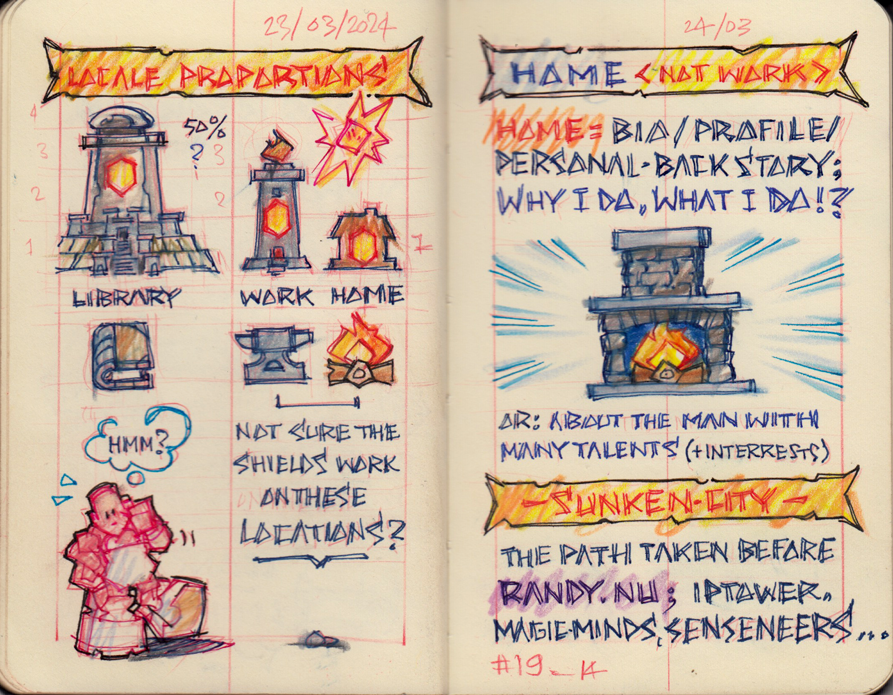 23/03/2024
LOCALE PROPORTIONS
4
3
2
1
50%
?
3
2
1
LIBRARY
WORK
HOME
HMM?
NOT SURE THE
SHIELDS WORK
ON THESE
LOCATIONS?
24/03
HOME <NOT WORK>
HOME= BIO/PROFILE/
PERSONAL-BACKSTORY;
WHY I DO, WHAT I DO!?
OR: ABOUT THE MAN WITH
MANY TALENTS (+INTERRESTS)
-SUNKEN-CITY-
THE PATH TAKEN BEFORE
RANDY.NU; IPTOWER,
MAGIE-MINDS, SENSENEERS...
#19_